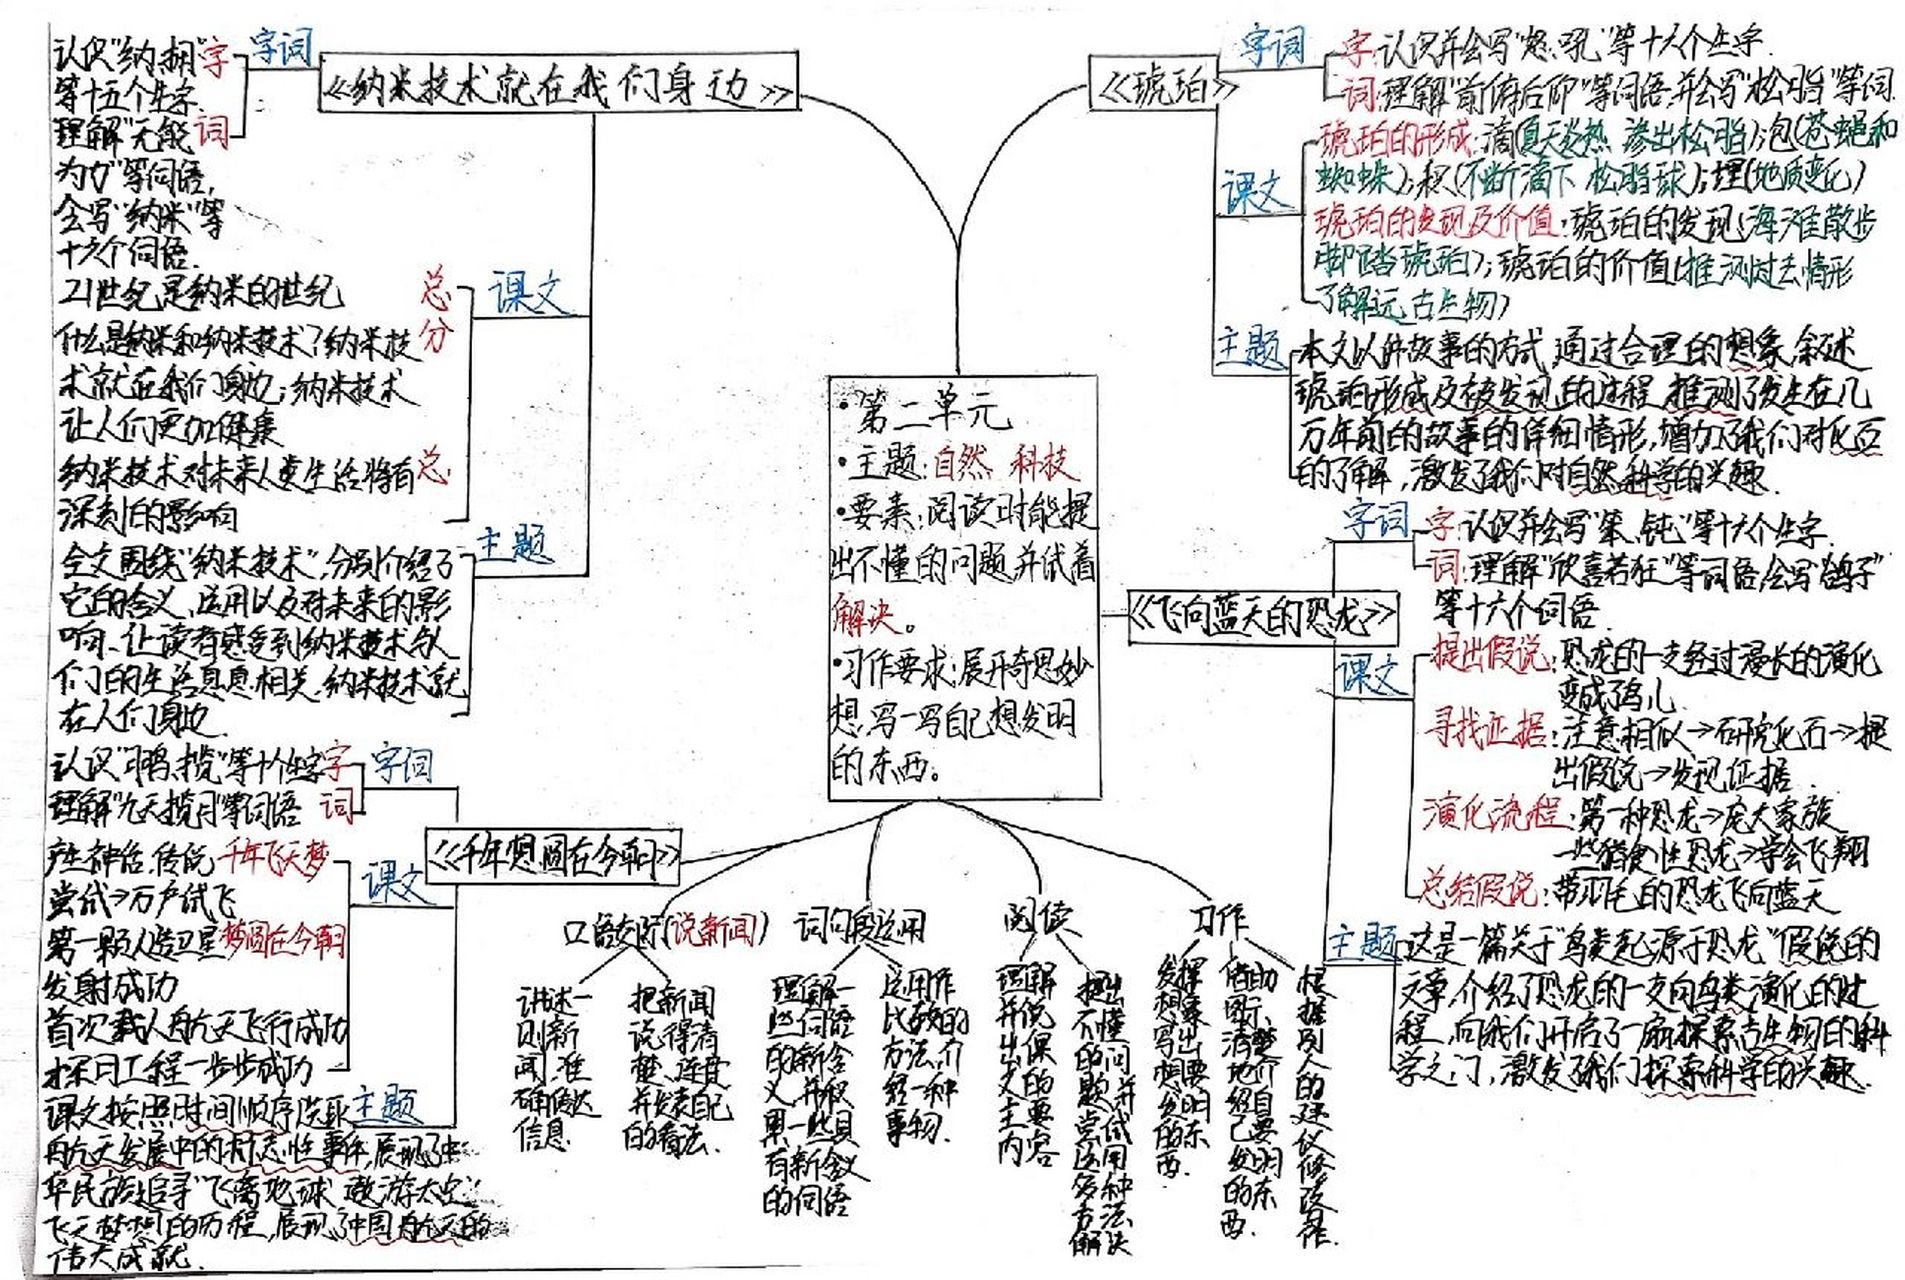 《纳米技术就在我们身边》
字词
字
认识"纳、拥"
等十五个生字.
词
理解"无能
为力"等词语,
会写"纳米"等
十六个词语.
课文
总
21世纪是纳米的世纪
分
什么是纳米和纳米技术?纳米技
术就在我们身边;纳米技术
让人们更加健康
总
纳米技术对未来人类生活将有
深刻的影响
主题
全文围绕"纳米技术",分别介绍了
它的含义、运用以及对未来的影
响、让读者感受到纳米技术与人
们的生活息息相关.纳米技术就
在人们身边.
《琥珀》
字词
字:认识并会写"怒、吼"等十六个生字.
词:理解"前俯后仰"等词语,并会写"松脂"等词.
课文
琥珀的形成:滴(夏天炎热 渗出松脂);包(苍蝇和
蜘蛛);积(不断滴下 松脂球);埋(地质变化)
琥珀的发现及价值:琥珀的发现(海滩散步
脚踏琥珀);琥珀的价值(推测过去情形
了解远古生物)
主题
本文以讲故事的方式,通过合理的想象,叙述
琥珀形成及被发现的过程,推测了发生在几
万年前的故事的详细情形,增加了我们对化石
的了解,激发了我们对自然科学的兴趣.
·第二单元
·主题:自然 科技
·要素:阅读时能提
出不懂的问题并试着
解决。
·习作要求:展开奇思妙
想,写一写自己想发明
的东西。
《飞向蓝天的恐龙》
字词
字:认识并会写"笨、钝"等十六个生字.
词:理解"欣喜若狂"等词语,会写"鸽子"
等十六个词语.
课文
提出假说:恐龙的一支经过漫长的演化
变成了鸟儿.
寻找证据:注意相似→研究化石→提
出假说→发现证据.
演化流程:第一种恐龙→庞大家族
一些猎食性恐龙→学会飞翔
总结假说:带羽毛的恐龙飞向蓝天
主题
这是一篇关于"鸟类起源于恐龙"假说的
文章,介绍了恐龙的一支向鸟类演化的过
程,向我们开启了一扇探索古生物的科
学之门,激发了我们探索科学的兴趣.
《千年梦圆在今朝》
字词
字
认识"鹏、揽"等十个生字
词
理解"九天揽月"等词语
课文
千年飞天梦
产生神话.传说
尝试→万户试飞
梦圆在今朝
第一颗人造卫星
发射成功
首次载人航天飞行成功
探月工程一步步成功
主题
课文按照时间顺序选取
航天发展中的标志性事件,展现了中
华民族追寻"飞离地球 遨游太空"
飞天梦想的历程,展现了中国航天的
伟大成就.
口语交际(说新闻)
讲述一
则新
闻,准
确传达
信息.
把新闻
说得清
楚、连贯
并发表自己
的看法.
词句段运用
理解一
些词语
的新含
义,并积
累一些具
有新含义
的词语
运用作
比较的
方法介
绍一种
事物.
阅读
理解
并说
出课
文的
主要
内容
提出
不懂
的问
题,并
尝试
运用
多种
方法
解决
习作
发挥
想象
写出
想要
发明
的东
西.
借助
图示,
清楚
地介
绍自
己要
发明
的东
西.
根据别人的建议修改习作.